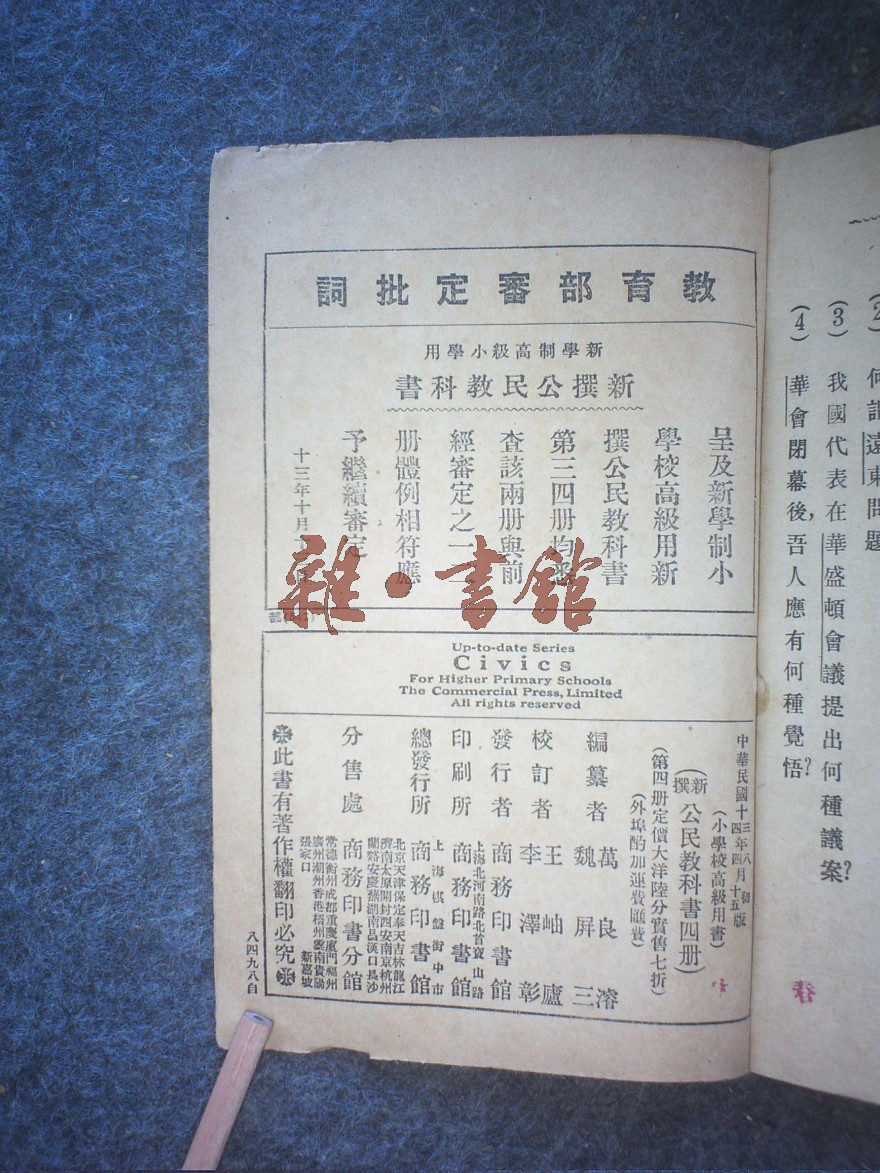 教育部審定批詞
新學制高級小學用
新撰公民教科書
呈及新學制小
學校高級用新
撰公民教科書
第三四册均悉
查該兩册與前
經審定之一二
册體例相符應
予繼續審定
十三年十月
Up-to-date Series
Civics
For Higher Primary Schools
The Commercial Press, Limited
All rights reserved
中華民國十三年八月初版
十四年四月十五版
(小學校高級用書)
(新撰)公民教科書四册)
(第四册定價大洋陸分實售七折)
(外埠酌加運費匯費)
編纂者 萬良濬
魏屏三
校訂者 王岫廬
李澤彰
發行者 商務印書館
上海北河南路北首寶山路
印刷所 商務印書館
上海棋盤街中市
總發行所 商務印書館
北京天津保定奉天吉林龍江
濟南太原開封西安南京杭州
蘭谿安慶蕪湖南昌漢口長沙
分售處 商務印書分館
常德衡州成都重慶廈門福州
廣州潮州香港梧州雲南貴陽
張家口 新嘉坡
此書有著作權翻印必究
八四九八自
何謂遠東問題
(3) 我國代表在華盛頓會議提出何種議案?
(4) 華會閉幕後,吾人應有何種覺悟?
雜·書館